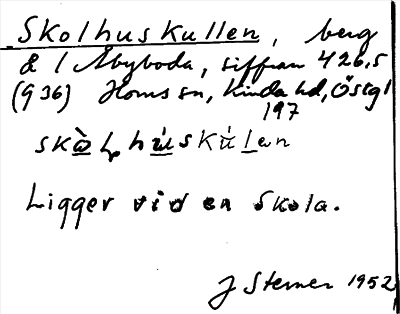 Skolhuskullen, berg
& 1 Åbyboda, siffran 426,5
(936) Horns sn, Kinda hd, Östgl
197
skòlhúskúlen
Ligger vid en skola.
J Sterner 1952